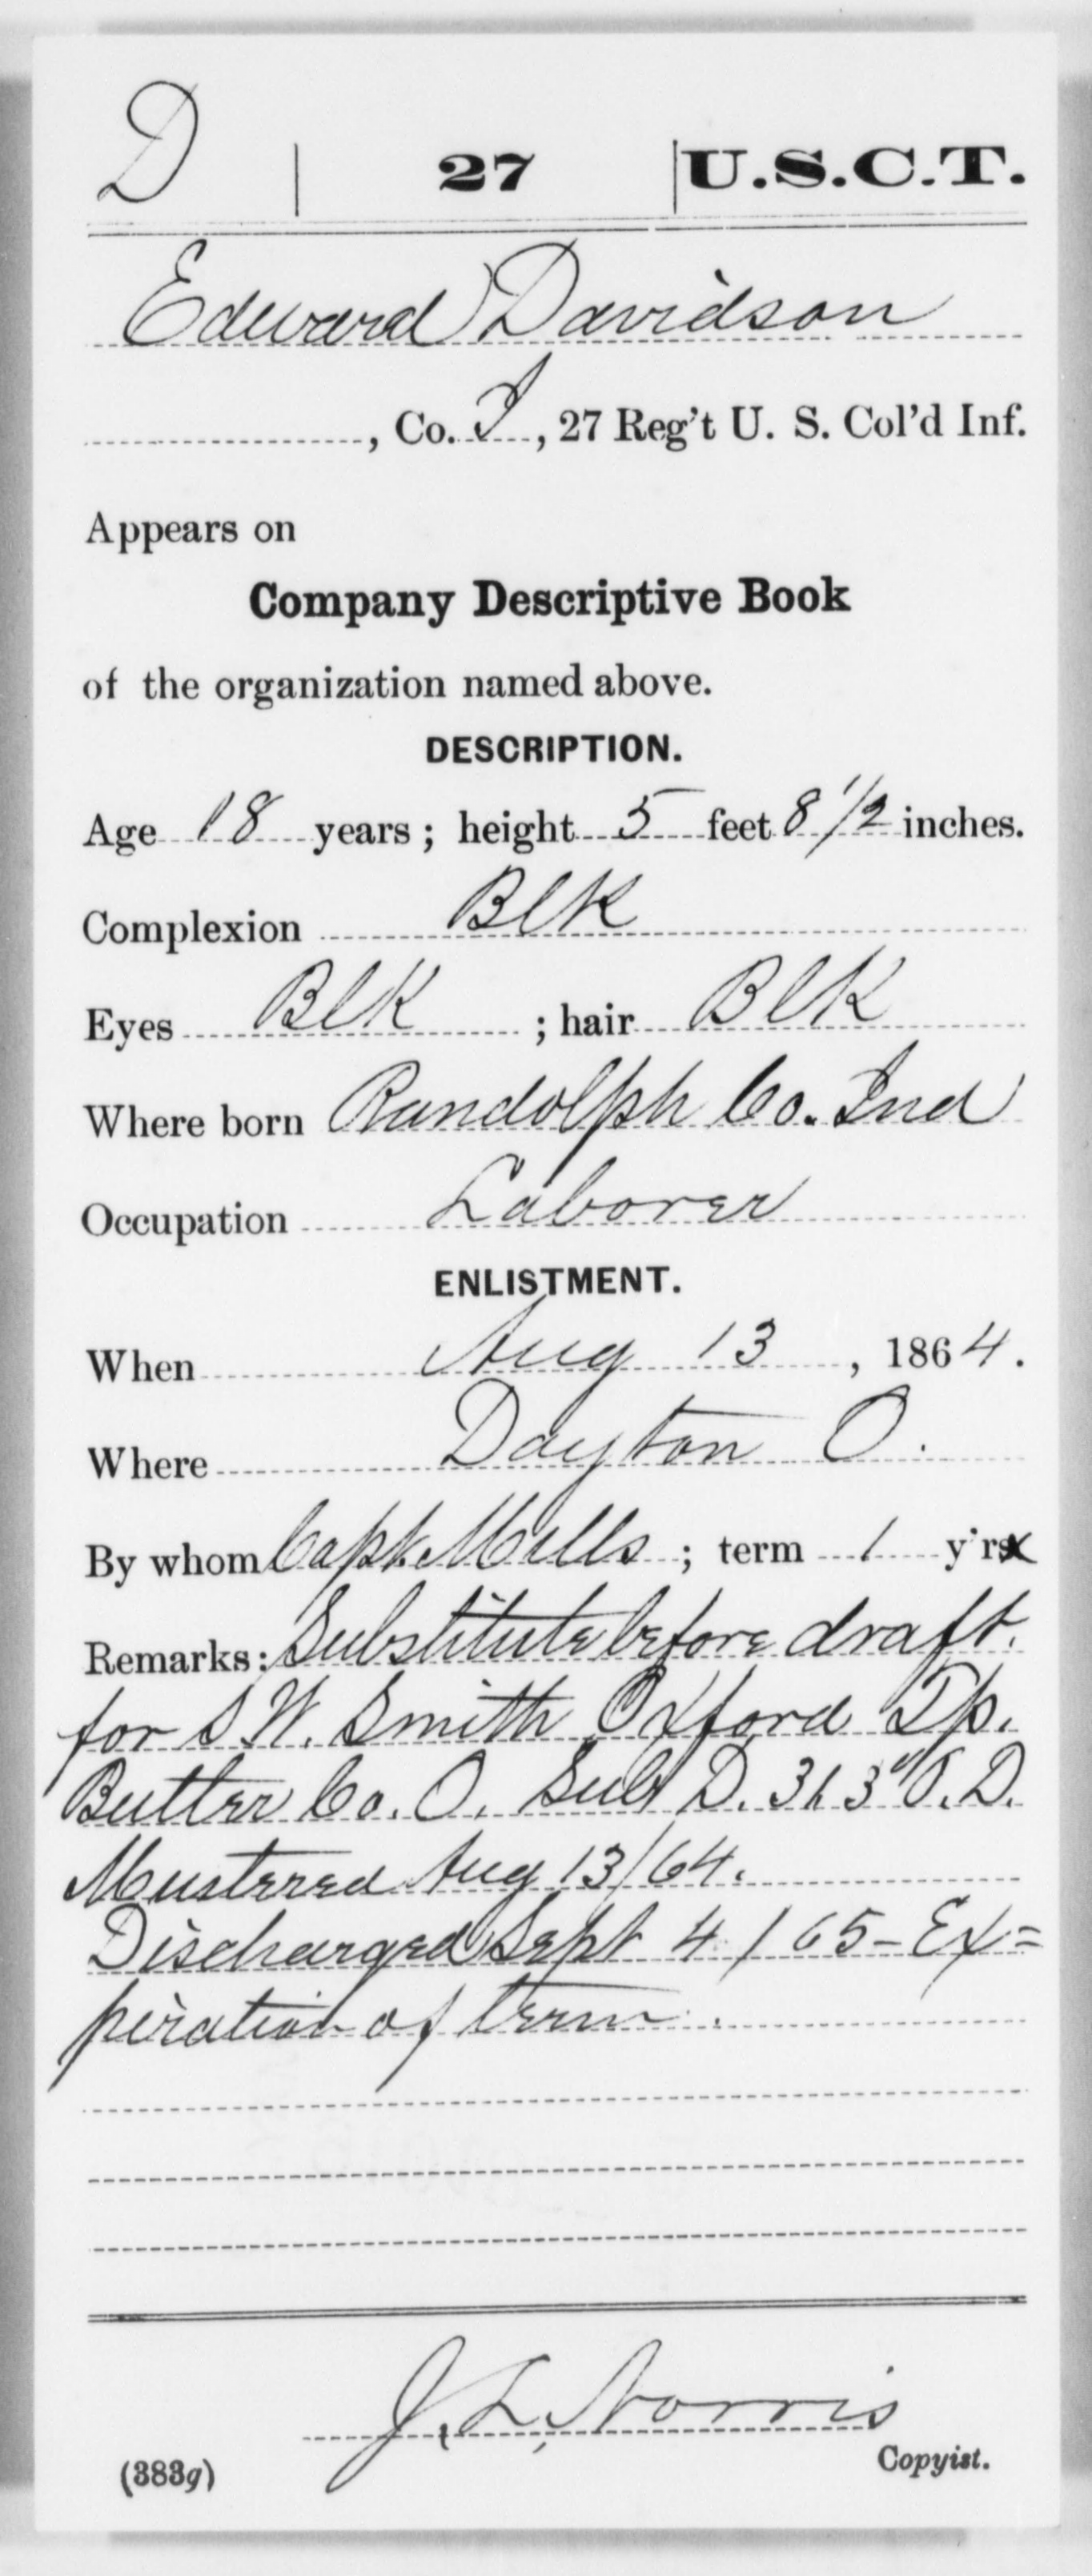 D | 27 | U.S.C.T.
Edward Davidson
, Co. I, 27 Reg't U. S. Col'd Inf.
Appears on
Company Descriptive Book
of the organization named above.
DESCRIPTION.
Age 18 years; height 5 feet 8 1/2 inches.
Complexion Blk
Eyes Blk ; hair Blk
Where born Randolph Co. Ind
Occupation Laborer
ENLISTMENT.
When Aug 13, 1864.
Where Dayton O.
By whom Capt. Mills; term 1 y'rs
Remarks: Substitute before draft.
for S. W. Smith Oxford Tp.
Butler Co. O. Sub D. 3rd O. D.
Mustered Aug 13/64.
Discharged Sept 4/65 - Ex=
piration of term.
J. L. Norris
Copyist.
(383g)